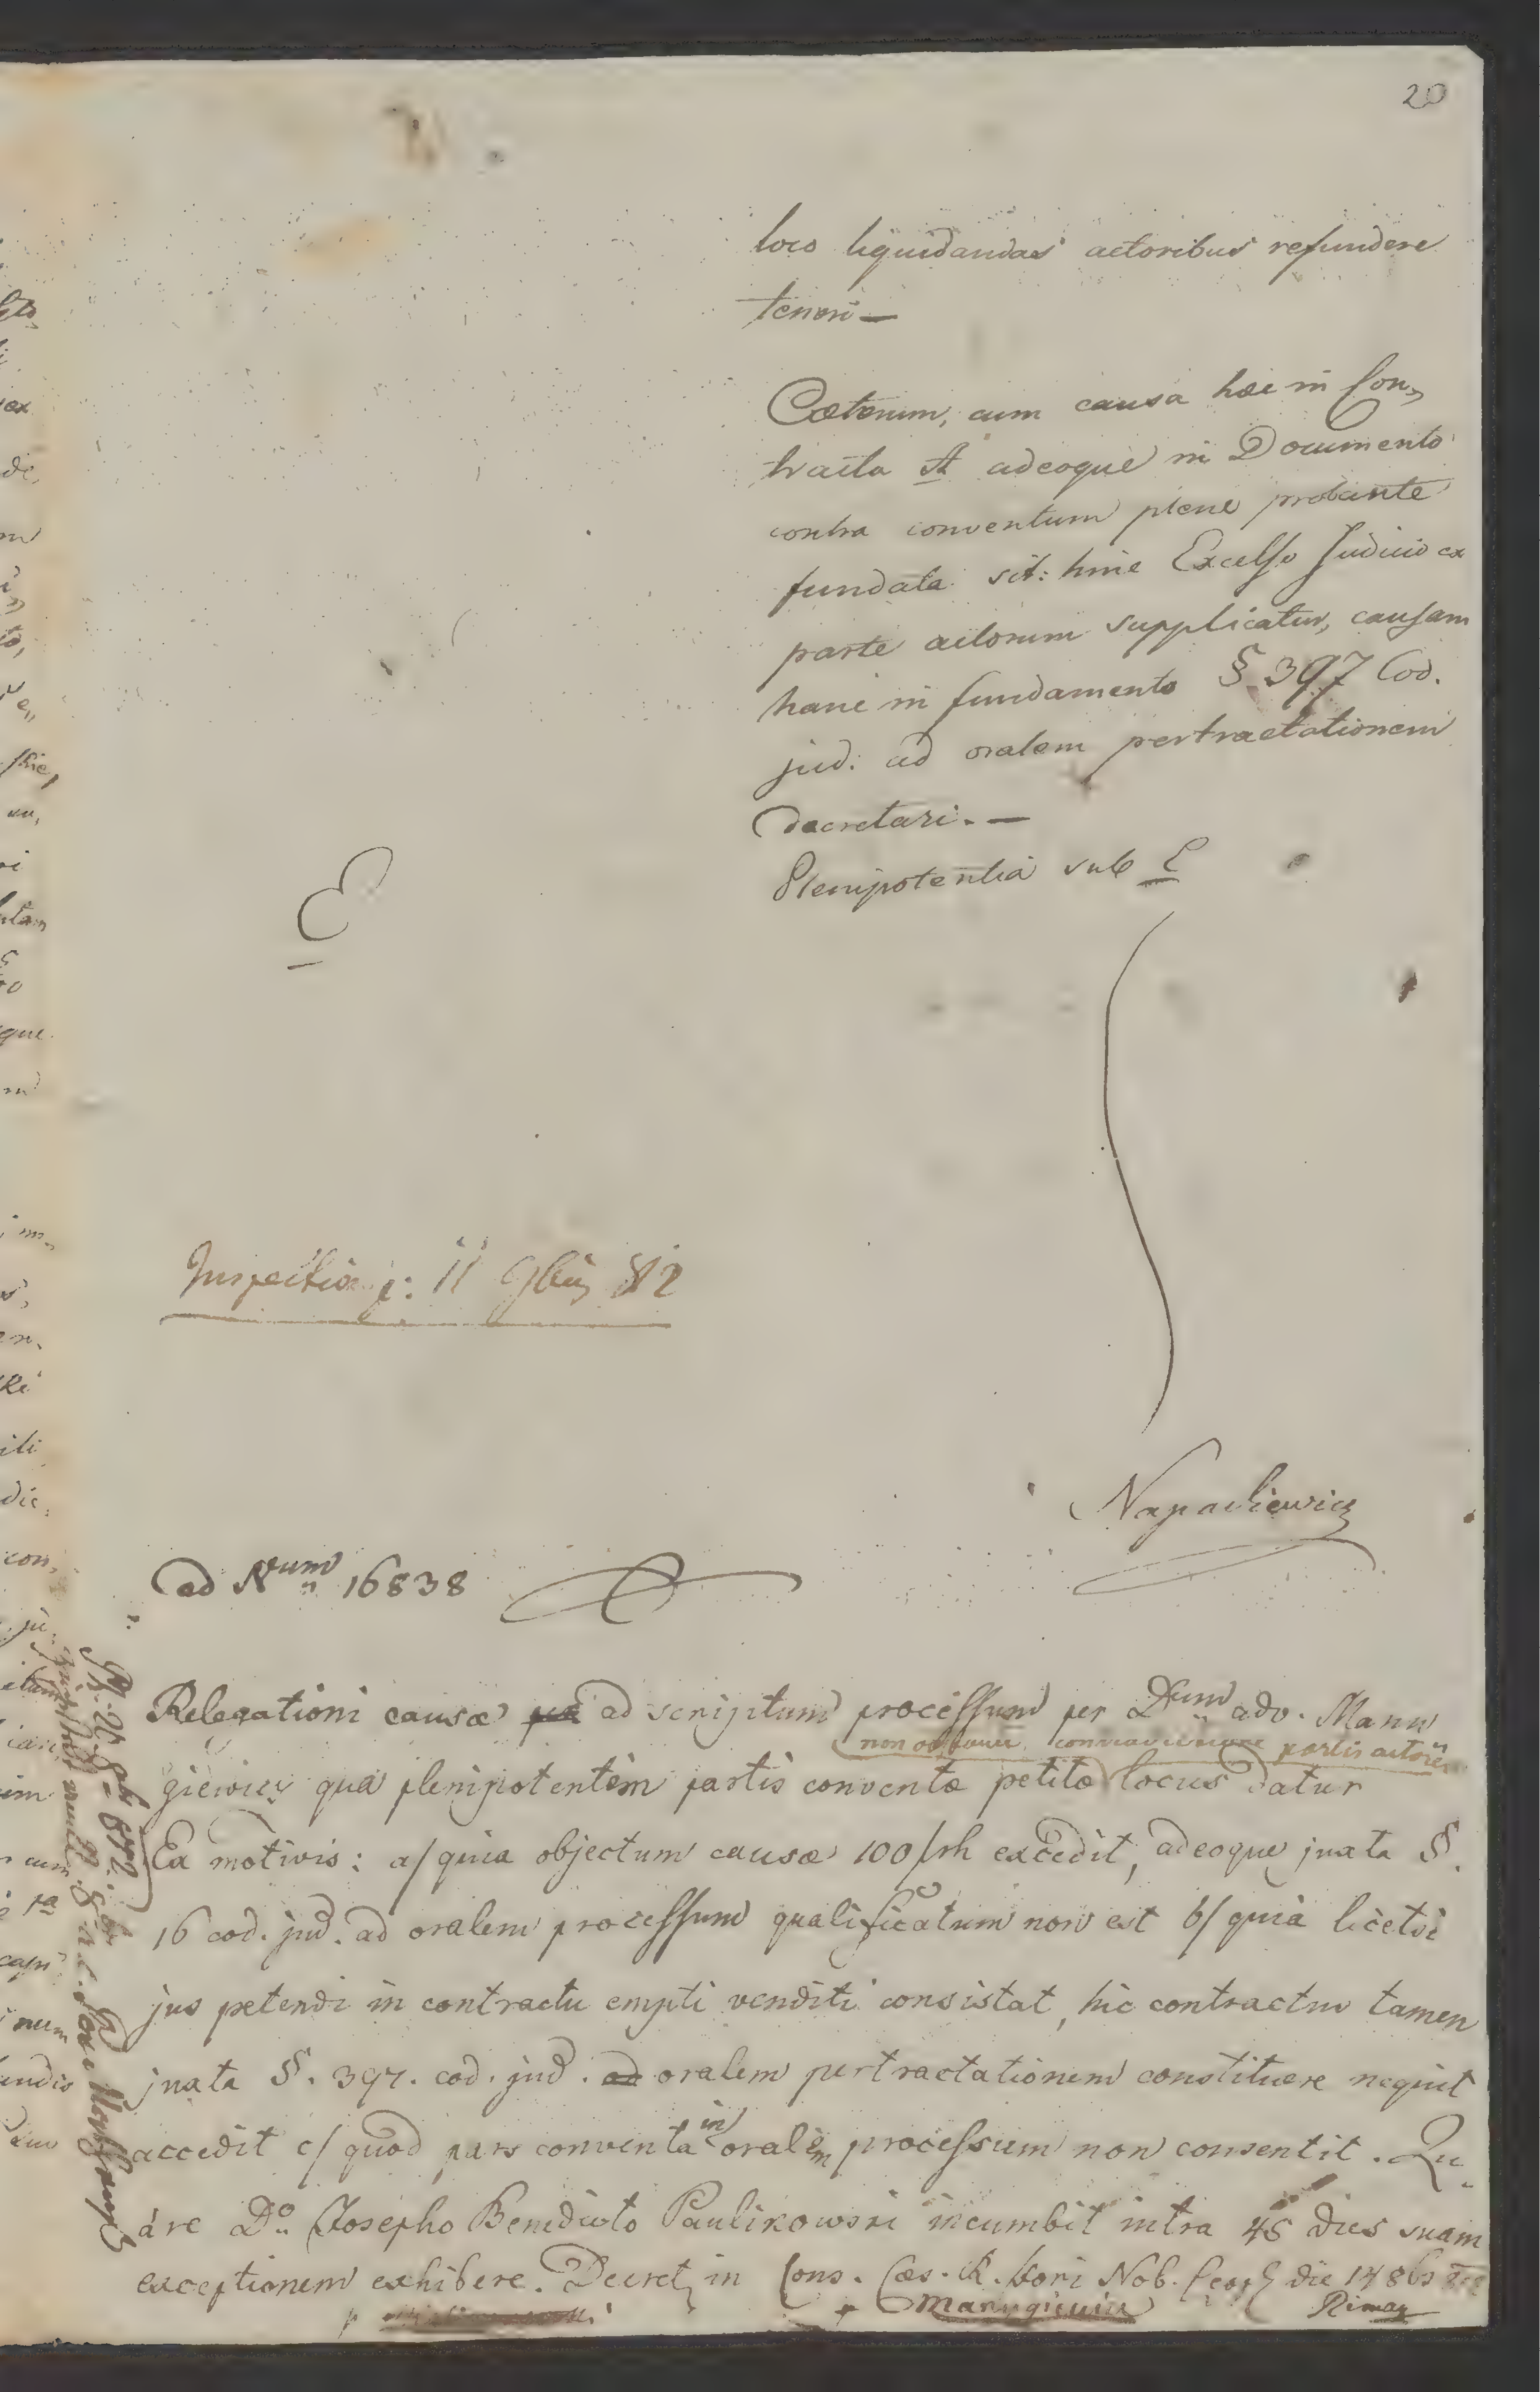 20
loco liquidandas actoribus refundere
teneri —
Cæterum, cum causa hæc in Con„
tractu A adeoque in Documento
contra conventum plene probante
fundata sit: hinc Excelso Judicio ex
parte actorum supplicatur, causam
hanc in fundamento § 397 Cod.
jud: ad oralem pertractationem
decretari. —
Plenipotentia sub E
E
Inspectio 11 9bris 812
Napadiewicz
ad Num 16838
Relegationi causæ ad scriptum processum per Dnum adv. Manu
non obstante contradictione partis actoreæ
giewicz qua plenipotentem partis conventæ petitæ locus datur
Ex motivis: a/ quia objectum causæ 100 frh excedit, adeoque juxta §.
16 cod. jud. ad oralem processum qualificatum non est b/ quia licetsi
jus petendi in contractu empti venditi consistat, hic contractus tamen
juxta §. 397. cod. jud. ad oralem pertractationem constituere nequit
accedit c/ quod pars conventa in oralem processum non consentit. Qu„
are Do Josepho Benedicto Paulikowski incumbit intra 45 dies suam
exceptionem exhibere. Decret in Cons. Cæs. R. Fori Nob. Leop die 14 8bris